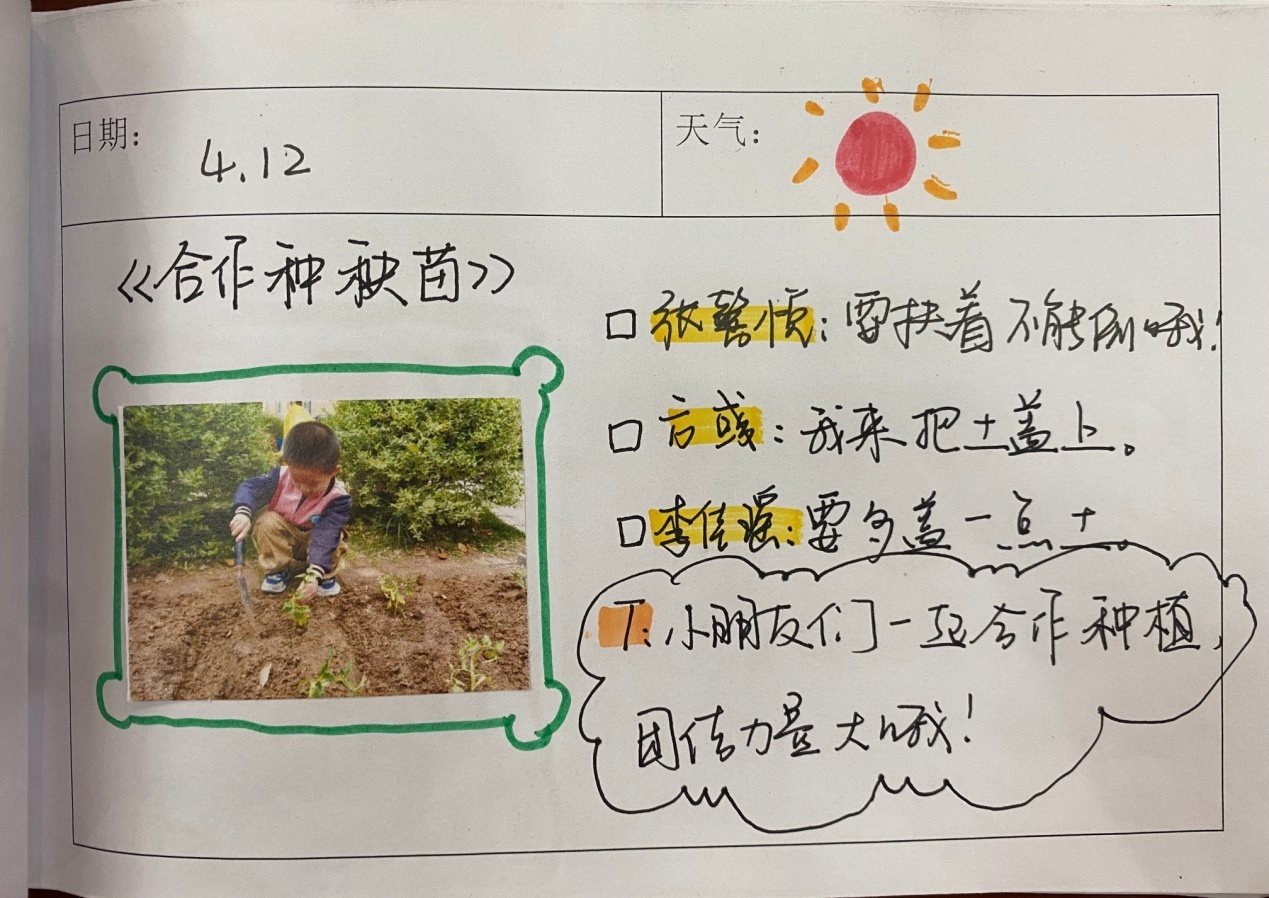 日期：
4.12
天气：
《合作种秧苗》
张馨：要扶着不能倒哦！
言彧：我来把土盖上。
李佳瑶：要多盖一点土。
T：小朋友们一起合作种植，
团结力量大哦！